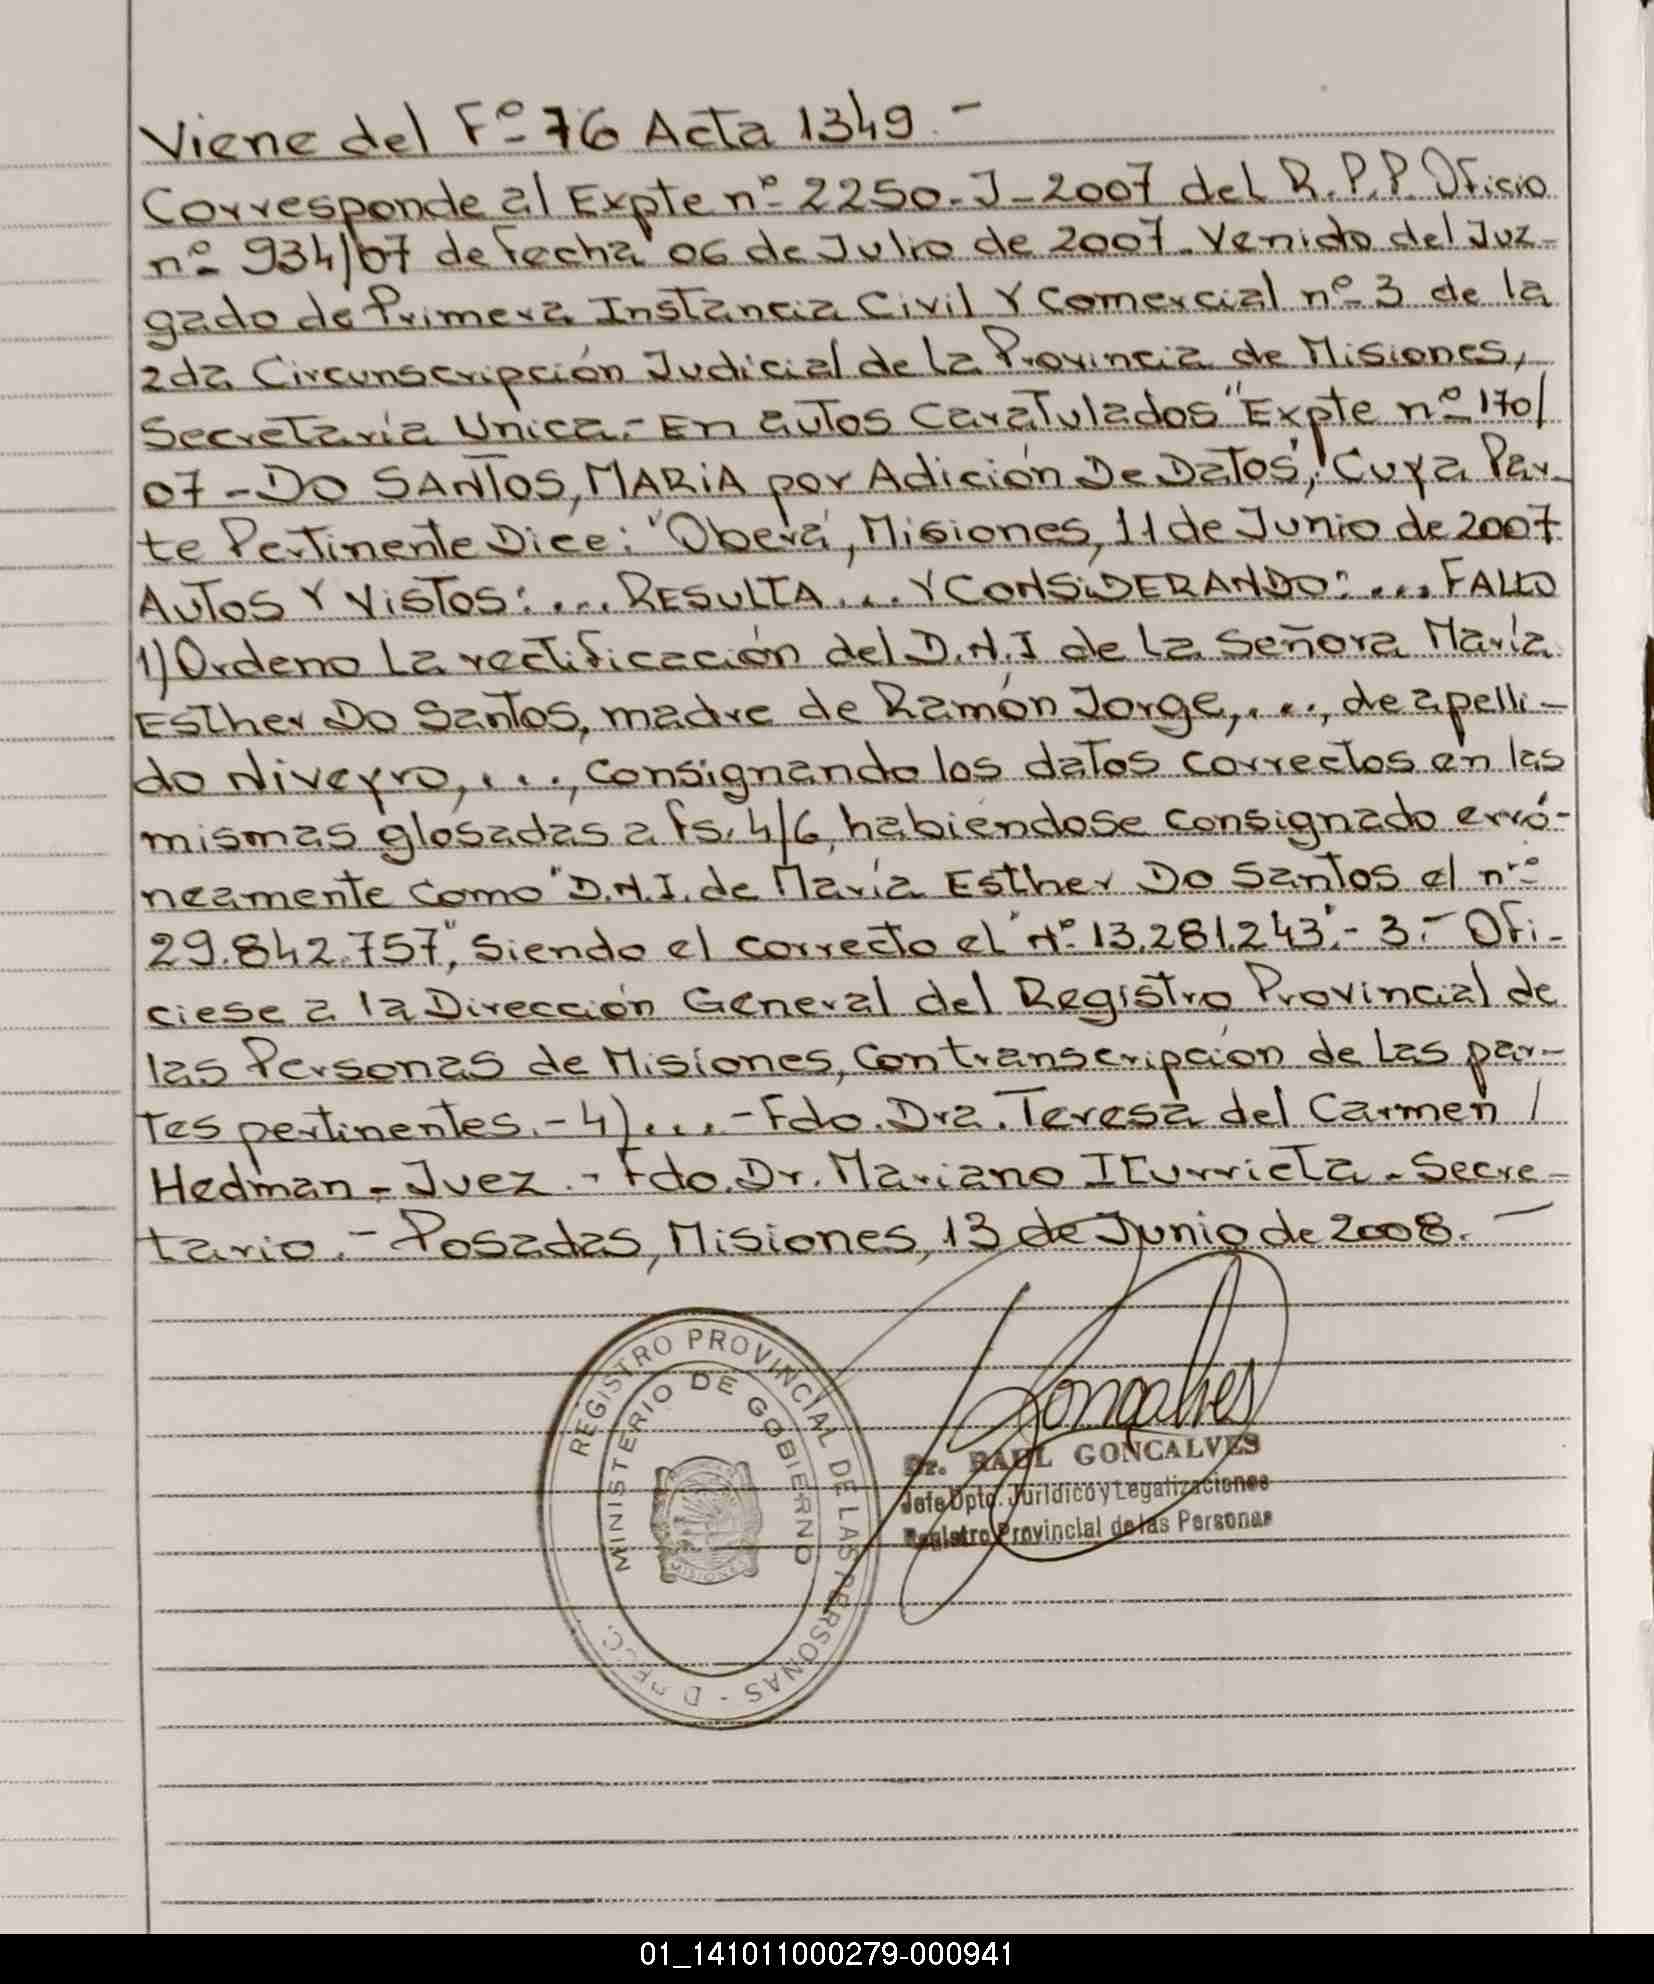 Viene del Fº 76 Acta 1349.-
Corresponde al Expte nº 2250-J-2007 del R.P.P. Oficio
nº 934/07 de fecha 06 de Julio de 2007. Venido del Juz-
gado de Primera Instancia Civil Y Comercial nº 3 de la
2da Circunscripción Judicial de La Provincia de Misiones,
Secretaría Unica.- En autos Caratulados "Expte nº 170/
07 - DO SANTOS, MARIA por Adición De Datos", Cuya Par-
te Pertinente Dice: "Oberá, Misiones, 11 de Junio de 2007
AUTOS Y VISTOS: ... RESULTA ... Y CONSIDERANDO: ... FALLO
1) Ordeno La rectificación del D.N.I de La Señora María
Esther Do Santos, madre de Ramón Jorge, ..., de apelli-
do Niveyro, ..., consignando los datos correctos en las
mismas glosadas a fs. 4/6, habiéndose consignado erró-
neamente como "D.N.I. de María Esther Do Santos el nrº
29.842.757", siendo el correcto el "Nº 13.281.243".- 3.- Ofi-
ciese a la Dirección General del Registro Provincial de
las Personas de Misiones, con transcripción de Las par-
tes pertinentes.- 4) ... - Fdo. Dra. Teresa del Carmen /
Hedman - Juez.- Fdo. Dr. Mariano Iturrieta - Secre-
tario.- Posadas, Misiones, 13 de Junio de 2008.-
REGISTRO PROVINCIAL DE LAS PERSONAS
MINISTERIO DE GOBIERNO
MISIONES
Goncalves
Dr. RAUL GONCALVES
Jefe Dpto. Jurídico y Legalizaciones
Registro Provincial de las Personas
01_141011000279-000941